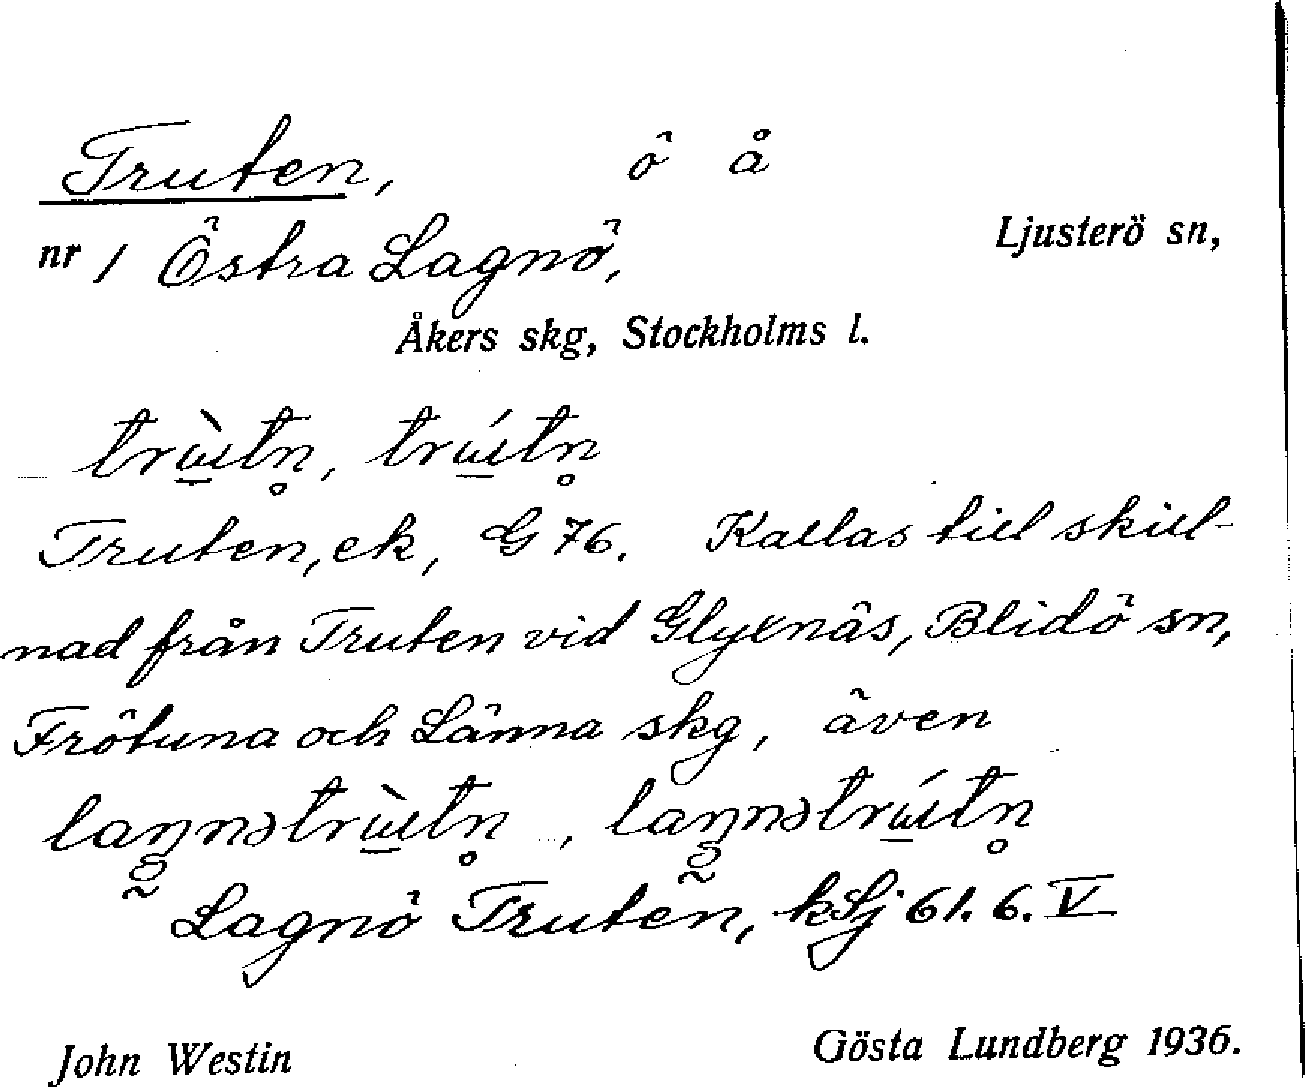 Truten, ö å
nr 1 Östra Lagnö, Ljusterö sn,
Åkers skg, Stockholms l.
Truten, ek, G 76. Kallas till skill-
nad från Truten vid Glyxnäs, Blidö sn,
Frötuna och Länna skg, även
Lagnö Truten, kLj 61. 6. V
John Westin Gösta Lundberg 1936.